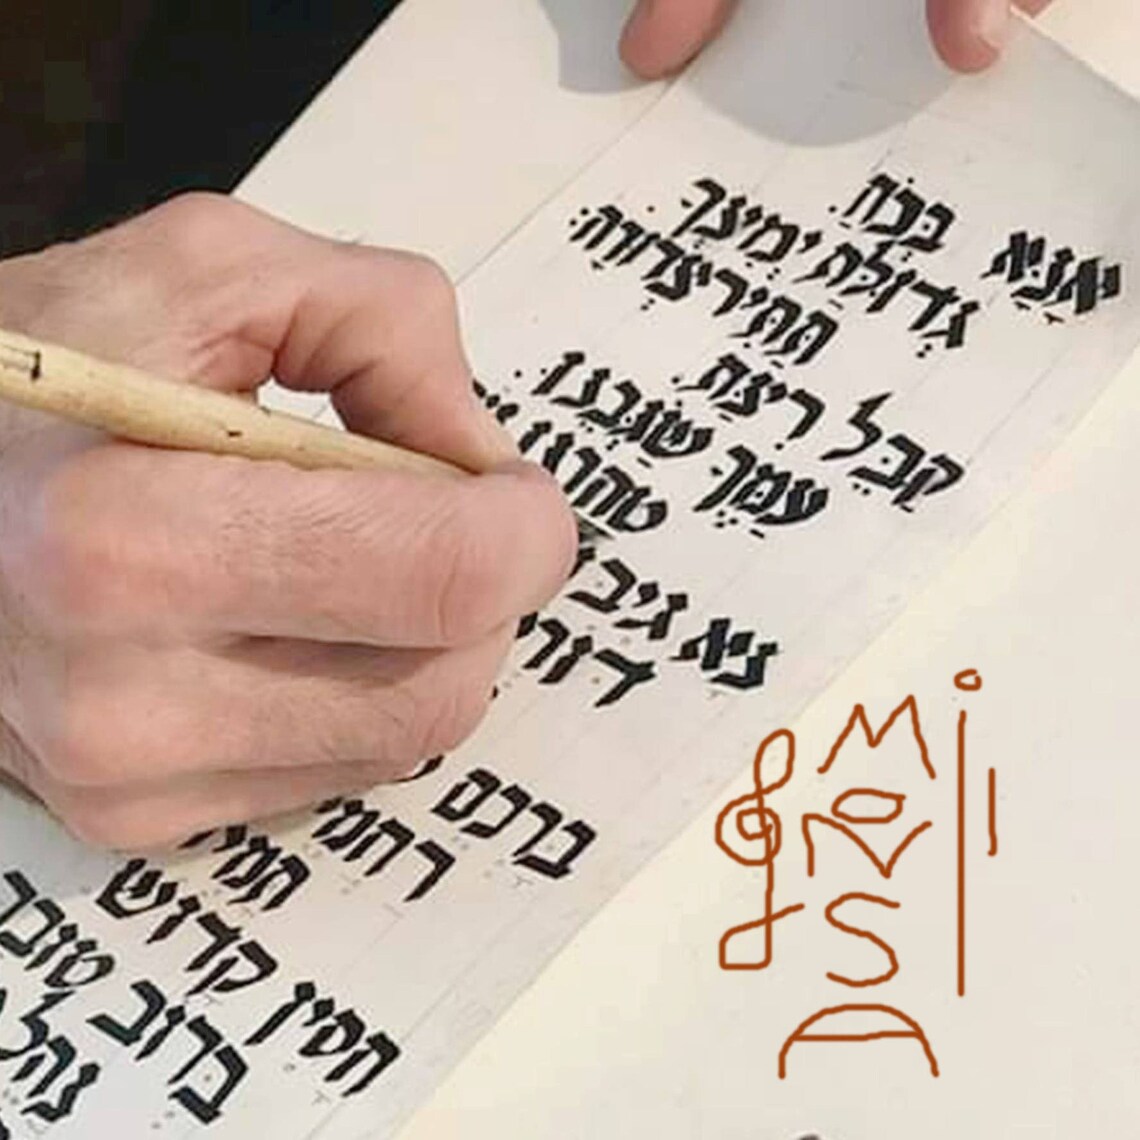 אנא בכח
גדולת ימינך
תתיר צרורה
קבל רינת
עמך שגבנו
טהרנו
נא גיב
דור
ברכם
רחמי
תמי
חסין קדוש
ברוב טובך
נהל